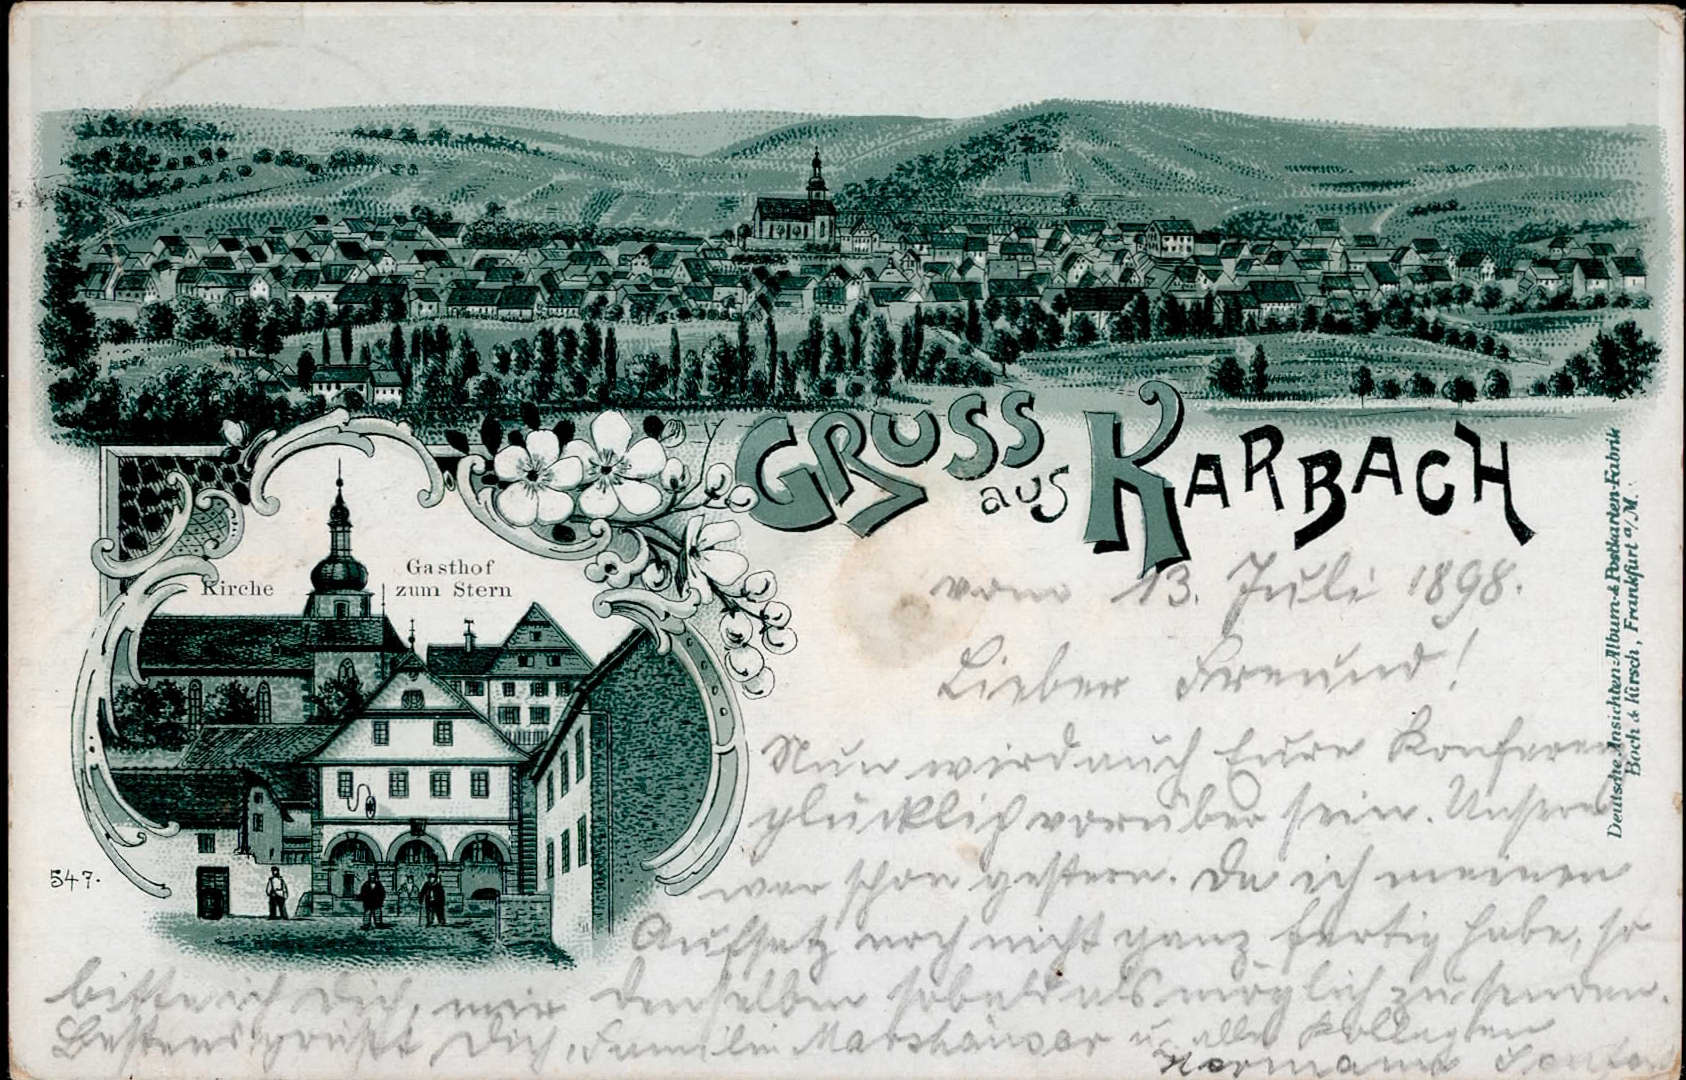 GRUSS
aus KARBACH
Kirche
Gasthof
zum Stern
547.
Deutsche Ansichten-Album- & Postkarten-Fabrik
Boch & Kirsch, Frankfurt a/M.
vom 13. Juli 1898.
Lieber Freund!
Nun wird auch Eure Konferenz
glücklich vorüber sein. Unsere
war schon gestern. Da ich meinen
Aufsatz noch nicht ganz fertig habe, so
bitte ich Dich, mir denselben sobald als möglich zu senden.
Bestens grüßt Dich, Familie u. alle Kollegen
Hermann